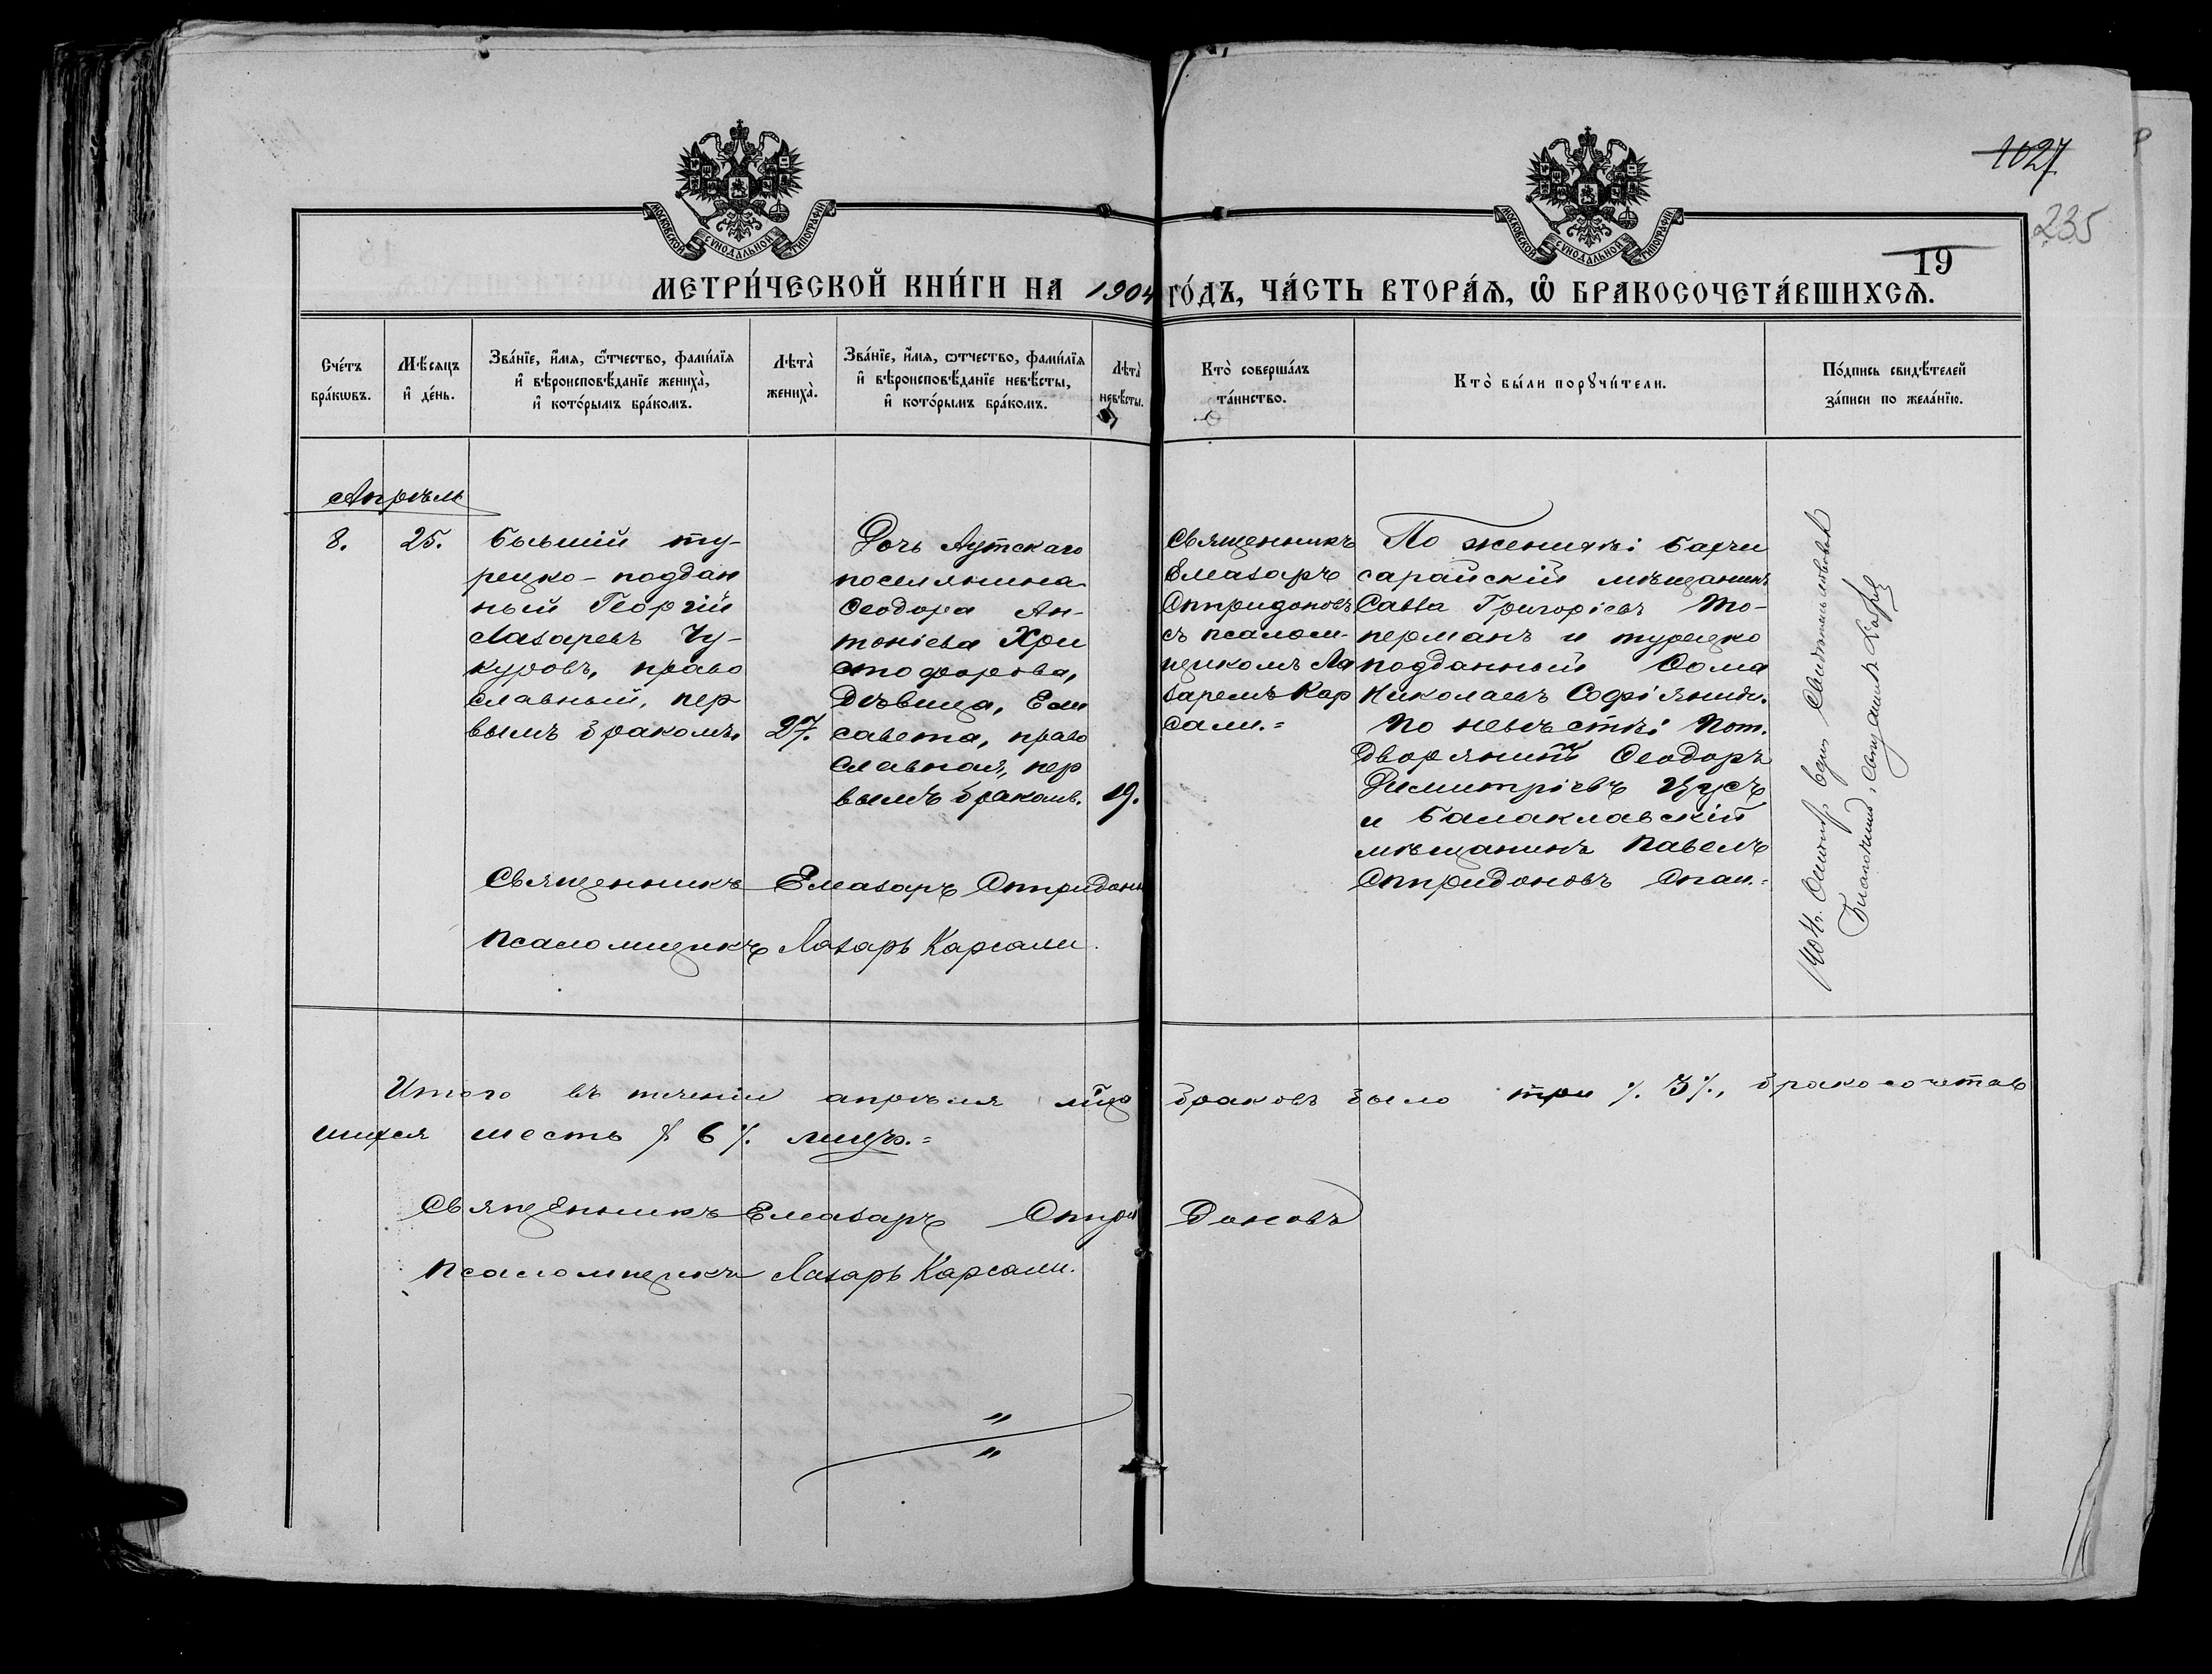 1027
235
19
МОСКОВСКОЙ СУНОДАЛЬНОЙ ТИПОГРАФІИ
МОСКОВСКОЙ СУНОДАЛЬНОЙ ТИПОГРАФІИ
МЕТРИ́ЧЕСКОЙ КНИ́ГИ НА 1904 ГО́ДЪ, ЧА́СТЬ ВТОРА́Ѧ, Ѽ БРАКОСОЧЕТА́ВШИХСѦ.
Сче́тъ
бра́кѡвъ.
Мѣ́сяцъ
и҆ де́нь.
Зва́нїе, и҆́мя, ѻ҆́тчество, фами́лїя
и҆ вѣроисповѣ́данїе жениха̀,
и҆ кото́рымъ бра́комъ.
Лѣта̀
жениха̀.
Зва́нїе, и҆́мя, ѻ҆тчество, фами́лїя
и҆ вѣроисповѣ́данїе невѣ́сты,
и҆ кото́рымъ бра́комъ.
Лѣта̀
невѣ́сты.
Кто̀ соверша́лъ
та́инство.
Кто̀ бы́ли порꙋчи́тели.
По́дпись свидѣ́телей
за́писи по жела́нїю.
Апрѣль
8.
25.
Бывшій ту-
рецко-поддан
ный Георгій
Лазаревъ Чу-
куровъ, право
славный, пер
вымъ бракомъ.
27.
Дочь Аутскаго
поселянина
Ѳеодора Ан-
тоніева Хри
стофорова,
Дѣвица, Ели
савета, право
славная, пер
вымъ бракомъ.
19.
Священникъ
Елеазаръ
Спиридоновъ
съ псалом-
щикомъ Ла
заремъ Кар
сали.=
По женихѣ: Бахчи
сарайскій мѣщанинъ
Савва Григоріевъ То-
перманъ и турецко
подданный Ѳома
Николаевъ Софіяниди.
По невѣстѣ: Пот.
Дворянинъ Ѳеодоръ
Димитріевъ Цусъ
и Балаклавскій
мѣщанинъ Павелъ
Спиридоновъ Спаи.=
Священникъ Елеазаръ Спиридоновъ
Псаломщикъ Лазарь Карсали.
Итого въ теченіи апрѣля м͠ца браковъ было три ./. 3 ./., бракосочетав
шихся шесть ./. 6 ./. лицъ.=
Священникъ Елеазаръ Спиридоновъ
Псаломщикъ Лазарь Карсали.